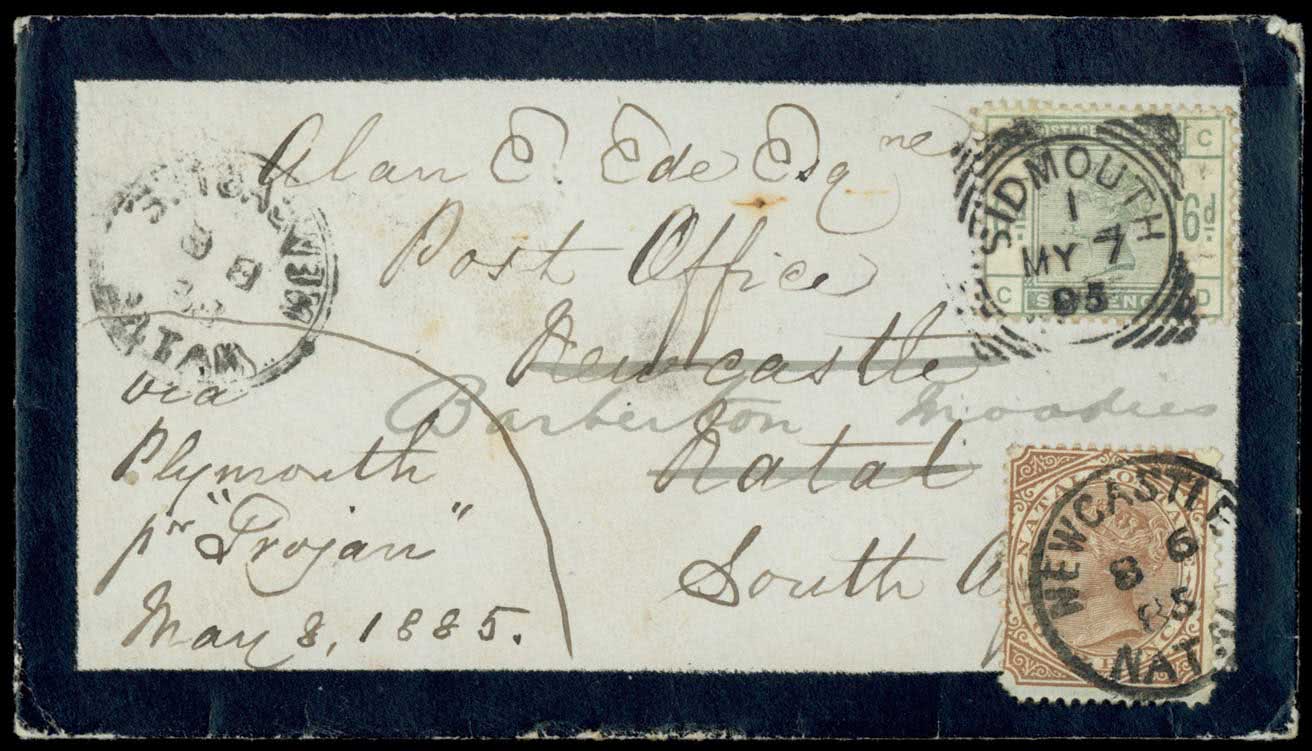 Alan E. Ede Esqre
Post Office
Newcastle
Barberton Moodies
Natal
South A
via
Plymouth
pr "Trojan"
May 8, 1885.
SIDMOUTH
1
MY 7
85
C
6d
C
D
NEWCASTLE
8 6
85
NATAL
NATAL